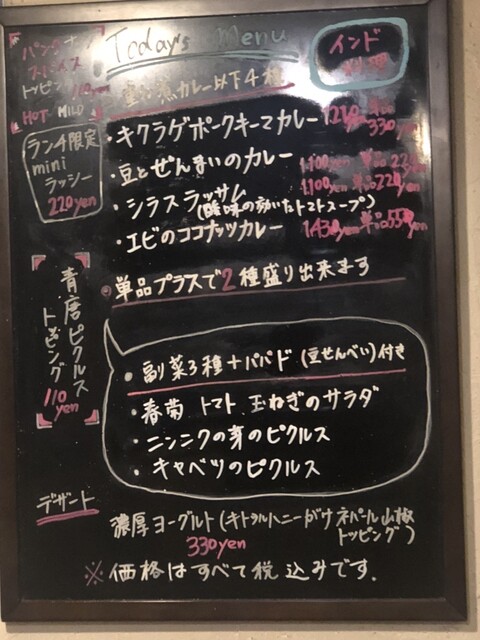 Today's Menu
インド
料理
パンチ
スパイス
トッピング110yen
HOT MILD
カレー以下4種
・キクラゲポークキーマカレー 1210yen 単品330yen
・豆とぜんまいのカレー 1,100yen 単品220yen
・シラスラッサム 1,100yen 単品220yen
(酸味の効いたトマトスープ)
・エビのココナッツカレー 1,430yen 単品550yen
・単品プラスで2種盛り出来ます
ランチ限定
mini
ラッシー
220yen
青唐ピクルス
トッピング
110
yen
・副菜3種+パパド(豆せんべい)付き
・春菊 トマト 玉ねぎのサラダ
・ニンニクの芽のピクルス
・キャベツのピクルス
デザート
濃厚ヨーグルト(キトラルハニーがけ ネパール山椒
トッピング)
330yen
※価格はすべて税込みです.